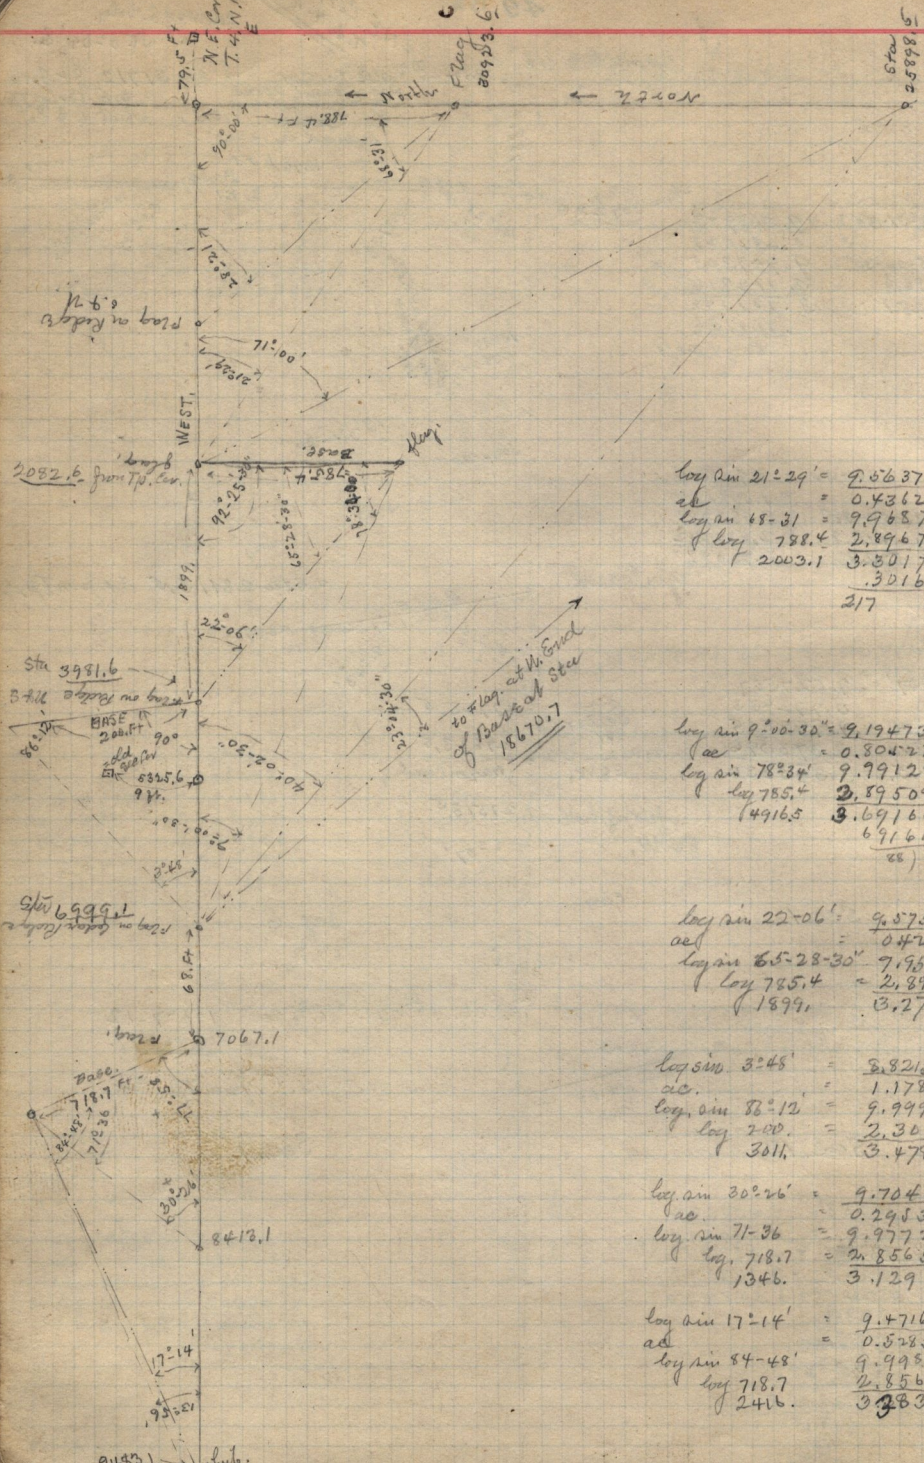 79.5 Ft
N.E. Cor
T.4.N.
E
Flag
30923.6
Sta
25898.5
North
North
788.4 Ft
90°-00'
68°-31'
28°-21'
Flag on Ridge
71°-00'
21°-29'
WEST.
flag.
Base.
785.4
flag,
2082.9
92°-25-30"
65°-28-30"
78°-34-00
1899.
22°-06'
Sta 3981.6
Flag on Ridge
BASE
200.Ft
86°-12'
90°
old
5325.6
40°-02'-30"
23°-04'-30"
to Flag. at W. End
of Base at Sta
18670.7
9°-00'-30"
Flag on Cedar Ridge
68.Ft
Flag.
7067.1
Base.
718.7 Ft
84°-48'
71°-36
30°-26'
8413.1
17°-14'
log sin 21°-29' = 9.5637
ac = 0.4362
log sin 68-31 = 9.9687
log 788.4 2.8967
2003.1 3.3017
.3016
217
log sin 9°-00'-30" = 9.19473
ac = 0.8052
log sin 78°-34' 9.9912
log 785.4 2.8950
4916.5 3.6916
6916
88
log sin 22-06' = 9.575
ac = 0.42
log sin 65-28-30" 9.95
log 785.4 = 2.89
1899. 3.27
log sin 3°-48' = 8.821
ac. = 1.178
log sin 86°-12' = 9.999
log 200. = 2.30
3011. 3.478
log sin 30°-26' = 9.704
ac. = 0.295
log sin 71-36 = 9.977
log. 718.7 = 2.856
1346. 3.129
log sin 17°-14' = 9.4716
ac = 0.528
log sin 84-48' 9.998
log 718.7 2.856
2416. 3.383